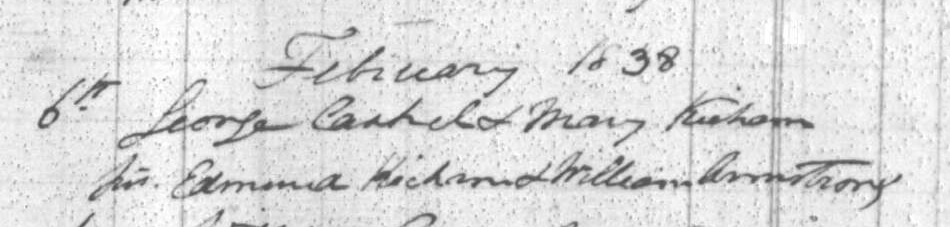 February 1838
6th George Cashel & Mary Kickam
Edmund Kickam & William Armstrong